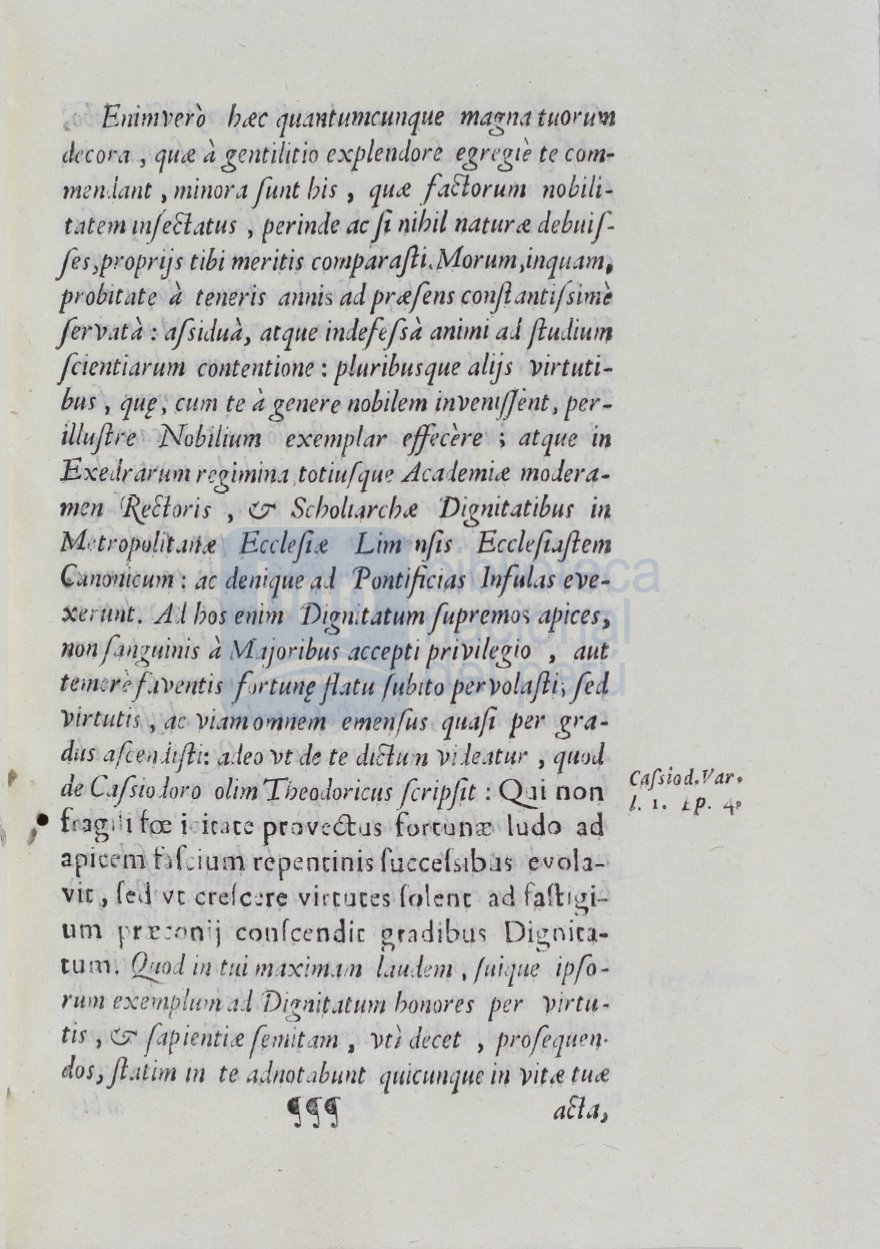 Enimverò hæc quantumcunque magna tuorum
decora, quæ à gentilitio explendore egregiè te com-
mendant, minora ſunt his, quæ factorum nobili-
tatem inſectatus, perinde ac ſi nihil naturæ debuiſ-
ſes, proprijs tibi meritis comparaſti. Morum, inquam,
probitate à teneris annis ad præſens conſtantiſsimè
ſervatà: aſsiduà, atque indefeſsà animi ad ſtudium
ſcientiarum contentione: pluribusque alijs virtuti-
bus, quę, cum te à genere nobilem inveniſſènt, per-
illuſtre Nobilium exemplar effecère; atque in
Exedrarum regimina, totiuſque Academiæ modera-
men Rectoris, & Scholiarchæ Dignitatibus in
Metropolitanæ Eccleſiæ Limnſis Eccleſiaſtem
Canonicum: ac denique ad Pontificias Infulas eve-
xerunt. Ad hos enim Dignitatum ſupremos apices,
non ſanguinis à Majoribus accepti privilegio, aut
temerè faventis fortunę flatu ſubito pervolaſti; ſed
virtutis, ac viam omnem emenſus quaſi per gra-
dus aſcendiſti: adeo vt de te dictum videatur, quod
de Caſsiodoro olim Theodoricus ſcripſit: Qui non
fragili fœicitate provectus fortunæ ludo ad
apicem faſcium repentinis ſucceſsibus evola-
vit, ſed vt creſcere virtutes ſolent ad faſtigi-
um præconij conſcendit gradibus Dignita-
tum. Quod in tui maximam laudem, ſuique ipſo-
rum exemplum ad Dignitatum honores per virtu-
tis, & ſapientiæ ſemitam, vtì decet, proſequen-
dos, ſtatim in te adnotabunt quicunque in vitæ tuæ
¶¶¶ acta,
Caſsiod. Var.
l. 1. Ep. 4.
biblioteca
nacional
del perú